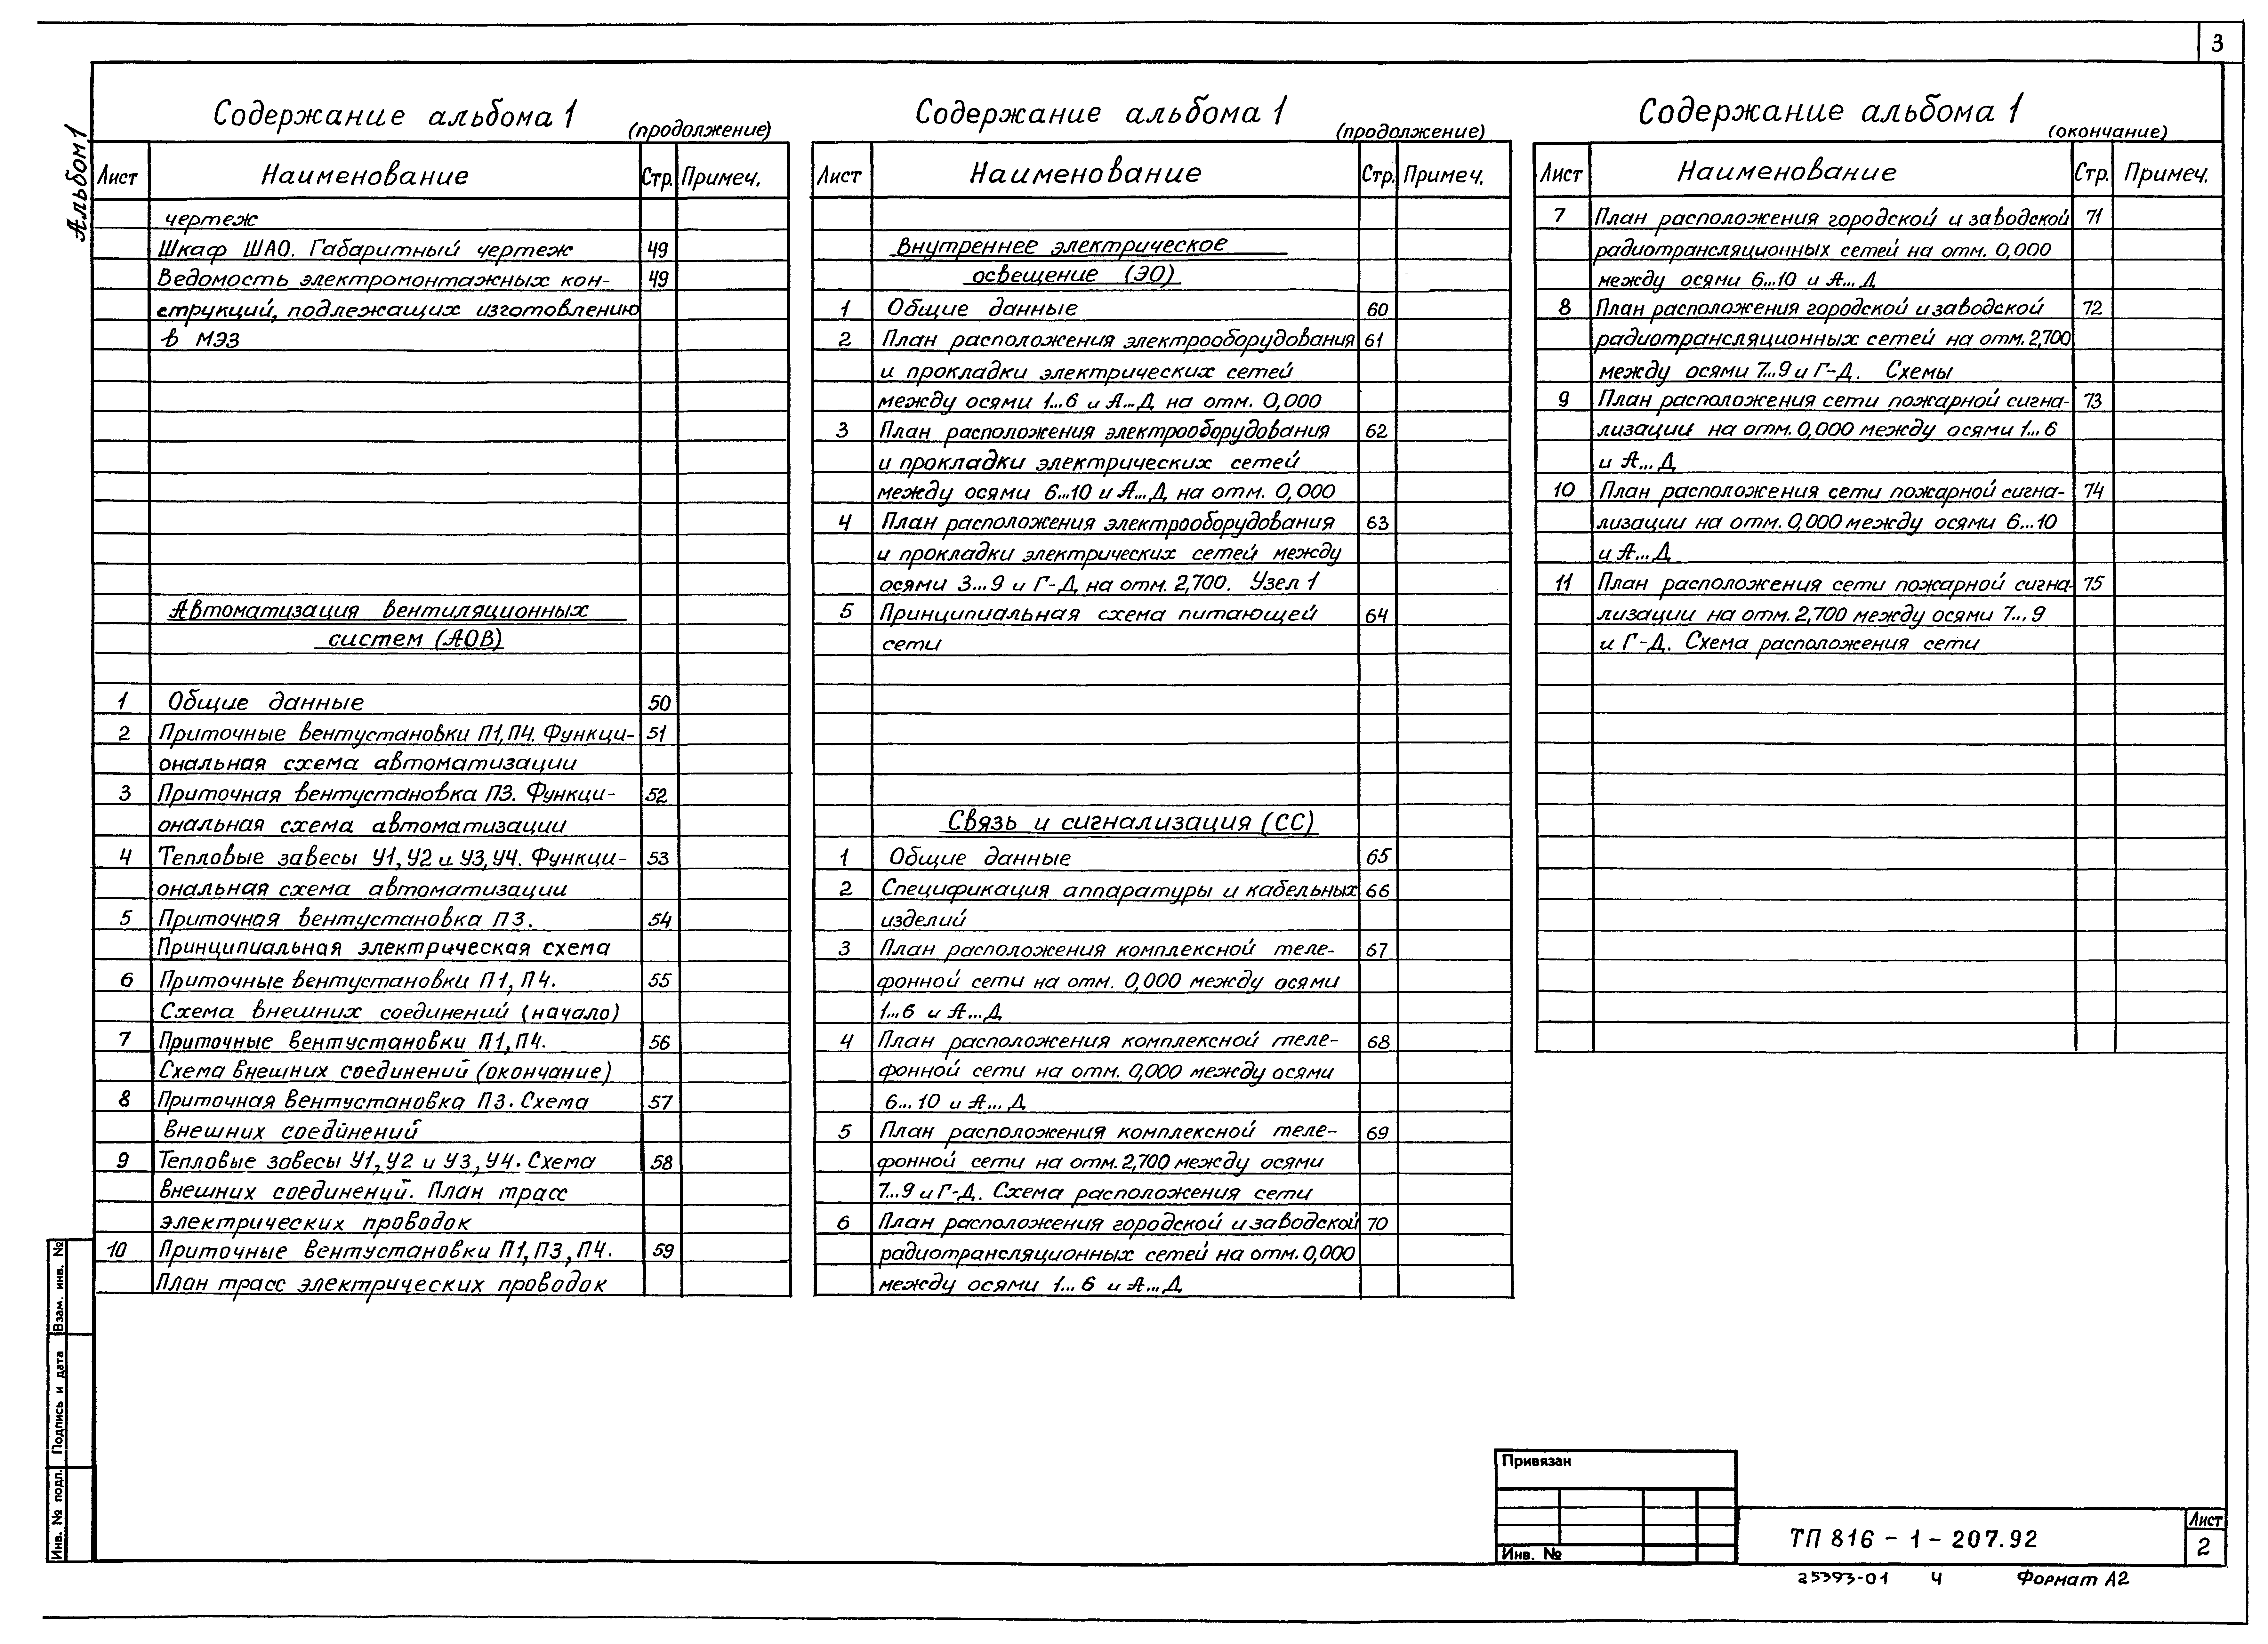 3
Альбом 1
Содержание альбома 1
(продолжение)
Лист Наименование Стр. Примеч.
чертеж
Шкаф ШАО. Габаритный чертеж 49
Ведомость электромонтажных кон- 49
струкций, подлежащих изготовлению
в МЭЗ
Автоматизация вентиляционных
систем (АОВ)
1 Общие данные 50
2 Приточные вентустановки П1, П4. Функци- 51
ональная схема автоматизации
3 Приточная вентустановка П3. Функци- 52
ональная схема автоматизации
4 Тепловые завесы У1, У2 и У3, У4. Функци- 53
ональная схема автоматизации
5 Приточная вентустановка П3. 54
Принципиальная электрическая схема
6 Приточные вентустановки П1, П4. 55
Схема внешних соединений (начало)
7 Приточные вентустановки П1, П4. 56
Схема внешних соединений (окончание)
8 Приточная вентустановка П3. Схема 57
внешних соединений
9 Тепловые завесы У1, У2 и У3, У4. Схема 58
внешних соединений. План трасс
электрических проводок
10 Приточные вентустановки П1, П3, П4. 59
План трасс электрических проводок
Содержание альбома 1
(продолжение)
Лист Наименование Стр. Примеч.
Внутреннее электрическое
освещение (ЭО)
1 Общие данные 60
2 План расположения электрооборудования 61
и прокладки электрических сетей
между осями 1...6 и А...Д на отм. 0,000
3 План расположения электрооборудования 62
и прокладки электрических сетей
между осями 6...10 и А...Д на отм. 0,000
4 План расположения электрооборудования 63
и прокладки электрических сетей между
осями 3...9 и Г-Д на отм. 2,700. Узел 1
5 Принципиальная схема питающей 64
сети
Связь и сигнализация (СС)
1 Общие данные 65
2 Спецификация аппаратуры и кабельных 66
изделий
3 План расположения комплексной теле- 67
фонной сети на отм. 0,000 между осями
1...6 и А...Д
4 План расположения комплексной теле- 68
фонной сети на отм. 0,000 между осями
6...10 и А...Д
5 План расположения комплексной теле- 69
фонной сети на отм. 2,700 между осями
7...9 и Г-Д. Схема расположения сети
6 План расположения городской и заводской 70
радиотрансляционных сетей на отм. 0,000
между осями 1...6 и А...Д
Содержание альбома 1
(окончание)
Лист Наименование Стр. Примеч.
7 План расположения городской и заводской 71
радиотрансляционных сетей на отм. 0,000
между осями 6...10 и А...Д
8 План расположения городской и заводской 72
радиотрансляционных сетей на отм. 2,700
между осями 7...9 и Г-Д. Схемы
9 План расположения сети пожарной сигна- 73
лизации на отм. 0,000 между осями 1...6
и А...Д
10 План расположения сети пожарной сигна- 74
лизации на отм. 0,000 между осями 6...10
и А...Д
11 План расположения сети пожарной сигна- 75
лизации на отм. 2,700 между осями 7...9
и Г-Д. Схема расположения сети
Взам. инв. №
Подпись и дата
Инв. № подл.
Привязан
Инв. №
ТП 816-1-207.92
Лист
2
25393-01 4 Формат А2